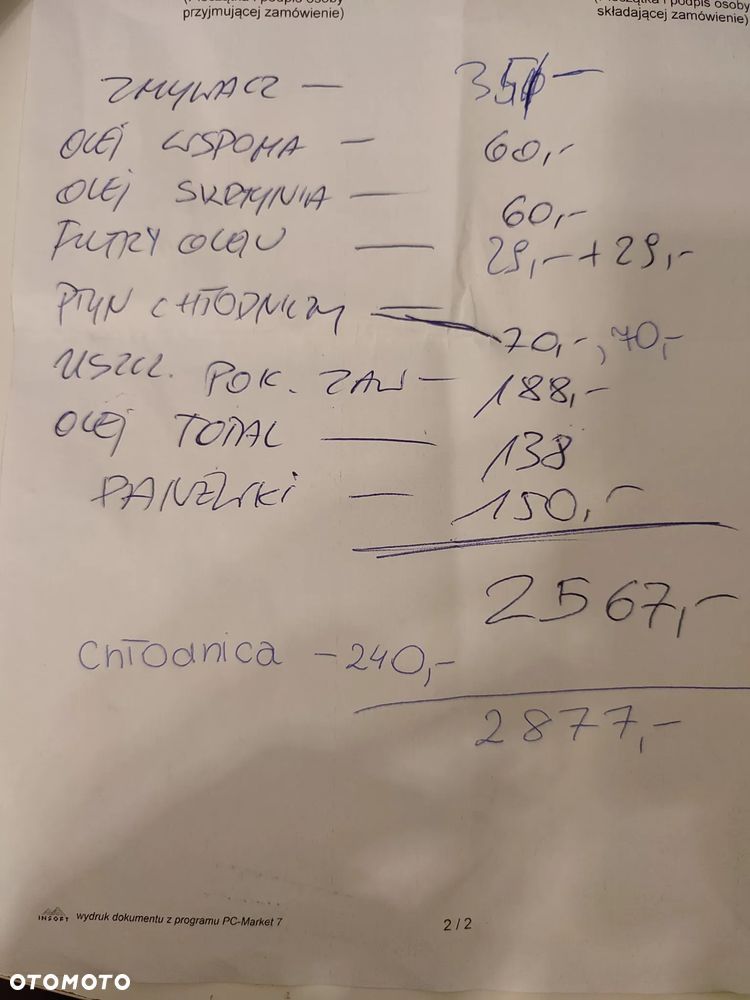 (Pieczątka i podpis osoby
przyjmującej zamówienie)
(Pieczątka i podpis osoby
składającej zamówienie)
ZMYWACZ — 35,-
OLEJ WSPOMA — 60,-
OLEJ SKRZYNIA — 60,-
FILTRY OLEJU — 29,- + 29,-
PŁYN CHŁODNICZY — 70,-, 70,-
USZCZ. POK. ZAW — 188,-
OLEJ TOTAL — 138
PANEWKI — 150,-
2567,-
Chłodnica - 240,-
2877,-
INSOFT wydruk dokumentu z programu PC-Market 7
2 / 2
OTOMOTO